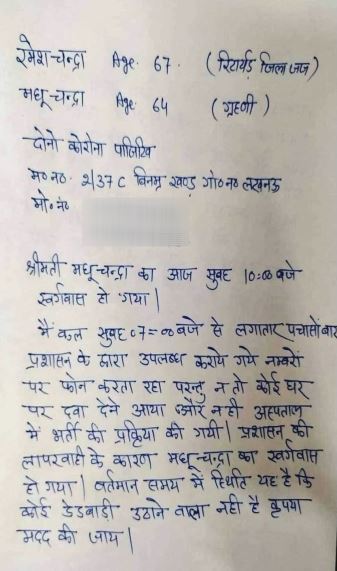 रमेश-चन्द्रा Age. 67. (रिटायर्ड जिला जज)
मधू-चन्द्रा Age 64 (ग्रहणी)
दोनो कोरोना पाजिटिव
म०न० 2/37 C विनम्र खण्ड गो०न० लखनऊ
मो० नं०
श्रीमती मधू-चन्द्रा का आज सुबह 10=00 बजे
स्वर्गवास हो गया।
मैं कल सुबह 07=00 बजे से लगातार पचासों बार
प्रशासन के द्वारा उपलब्ध कराये गये नम्बरों
पर फोन करता रहा परन्तु न तो कोई घर
पर दवा देने आया और न ही अस्पताल
में भर्ती की प्रक्रिया की गयी। प्रशासन की
लापरवाही के कारण मधू-चन्द्रा का स्वर्गवास
हो गया। वर्तमान समय में स्थिति यह है कि
कोई डेडबाडी उठाने वाला नही है कृपया
मदद की जाय।